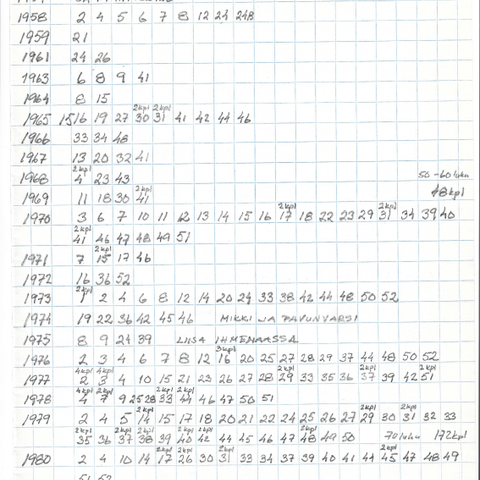 1958 2 4 5 6 7 8 12 24 248
1959 21
1961 24 26
1963 6 8 9 41
1964 8 15
2kpl 2kpl
1965 15 16 19 27 30 31 41 42 44 46
1966 33 34 48
1967 13 20 32 41
2kpl
1968 4 23 43
50-60 luku
2kpl
48kpl
1969 11 18 30 41
2kpl 2kpl
1970 3 6 7 10 11 12 13 14 15 16 17 18 22 23 29 31 34 39 40
2kpl
41 46 47 48 49 51
2kpl
1971 7 15 17 46
1972 16 36 52
2kpl
1973 1 2 4 6 8 12 14 20 24 33 38 42 44 48 50 52
1974 19 22 36 42 45 46 MIKKI JA PAVUNVARSI
1975 8 9 24 39 LIISA IHMEMAASSA
3kpl
1976 2 3 4 6 7 8 12 16 20 25 27 28 29 37 44 48 50 52
4kpl 4kpl 2kpl 2kpl
1977 2 3 4 10 15 21 23 26 27 28 29 33 35 36 37 39 42 51
4kpl 2kpl 2kpl
1978 4 7 9 25 28 33 44 46 47 50 51
2kpl 2kpl 2kpl
1979 2 4 5 14 15 17 18 20 21 22 24 25 26 27 29 30 31 32 33
2kpl 2kpl 2kpl 2kpl 2kpl 2kpl
35 36 37 38 39 40 42 44 45 46 47 48 49 50 70 luku 172kpl
2kpl 2kpl 2kpl 2kpl
1980 2 4 10 14 17 26 30 31 33 34 37 39 40 41 44 45 47 48 49
51 52